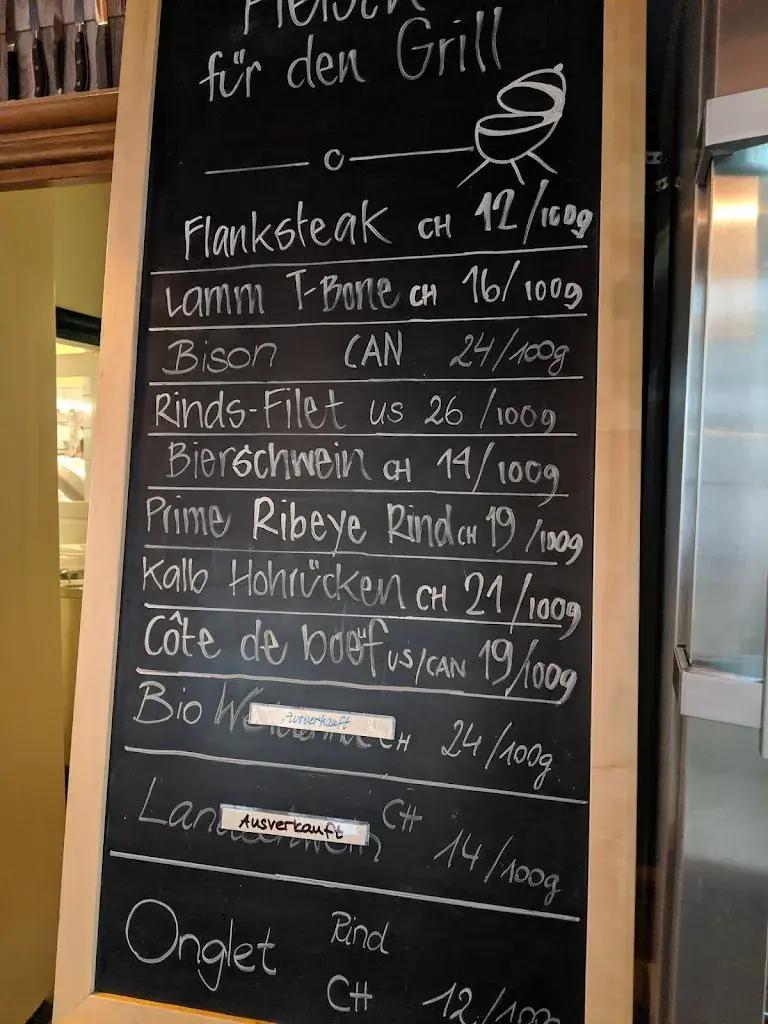 Fleisch
für den Grill
Flanksteak CH 12/100g
Lamm T-Bone CH 16/100g
Bison CAN 24/100g
Rinds-Filet US 26/100g
Bierschwein CH 14/100g
Prime Ribeye Rind CH 19/100g
Kalb Hohrücken CH 21/100g
Côte de boëuf US/CAN 19/100g
Bio CH 24/100g
Ausverkauft
CH 14/100g
Ausverkauft
Onglet Rind
CH 12/100g